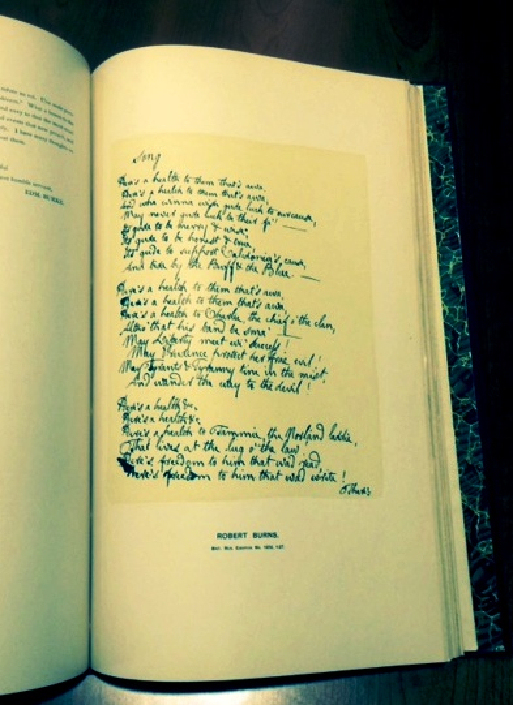 EDM. BURKE.
Song
Here's a health to them that's awa,
Here's a health to them that's awa,
And wha winna wish gude luck to our cause,
May never gude luck be their fa'
Its gude to be merry & wise,
Its gude to be honest & true,
Its gude to support Caledonia's cause,
And bide by the Buff & the Blue.
Here's a health to them that's awa,
Here's a health to them that's awa,
Here's a health to Charlie the chief o' the clan,
Altho' that his band be sma'
May Liberty meet wi' success!
May Prudence protect her frae evil!
May Tyrants & Tyranny tine in the mist,
And wander the way to the devil!
Here's a health &c.
Here's a health &c.
Here's a health to Tammie, the Norland laddie,
That lives at the lug o' the law
Here's freedom to him that wad read,
Here's freedom to him that wad write!
ROBERT BURNS.